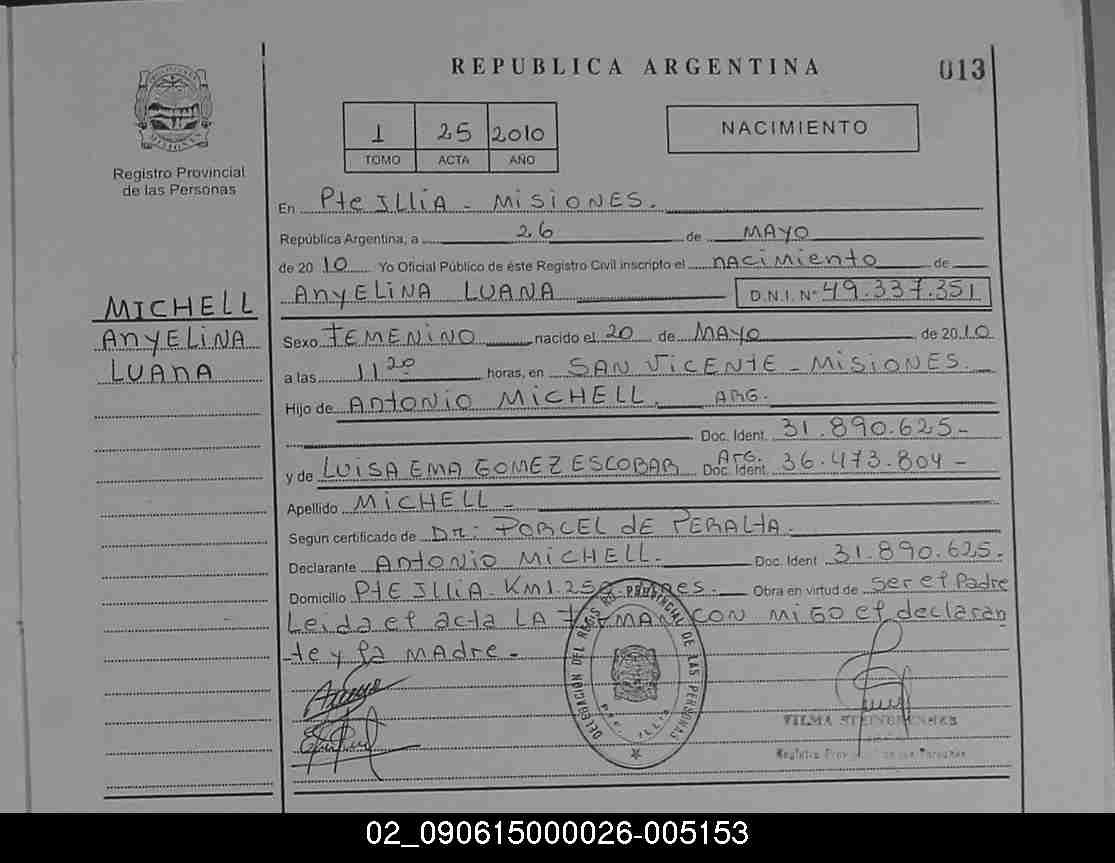 REPUBLICA ARGENTINA
013
1 25 2010
TOMO ACTA AÑO
NACIMIENTO
MISIONES
Registro Provincial
de las Personas
En Pte ILLIA - MISIONES.
República Argentina, a 26 de MAYO
de 2010 Yo Oficial Público de éste Registro Civil inscripto el nacimiento de
ANYELINA LUANA D.N.I. Nº 49.337.351
MICHELL
ANYELINA
LUANA
Sexo FEMENINO nacido el 20 de MAYO de 2010
a las 11 20 horas, en SAN VICENTE - MISIONES.
Hijo de ANTONIO MICHELL. ARG.
Doc. Ident. 31.890.625-
y de LUISA EMA GOMEZ ESCOBAR ARG. Doc. Ident. 36.473.804-
Apellido MICHELL -
Segun certificado de Dr: PORCEL de PERALTA.
Declarante ANTONIO MICHELL. Doc. Ident 31.890.625.
Domicilio Pte ILLIA. KM1.252 Obra en virtud de ser el Padre
Leida el acta LA FIRMAN CON MIGO el declaran
te y la MADRE -
DELEGACION DEL REGISTRO PROVINCIAL DE LAS PERSONAS
PTE. ILLIA
VILMA
Registro
02_090615000026-005153